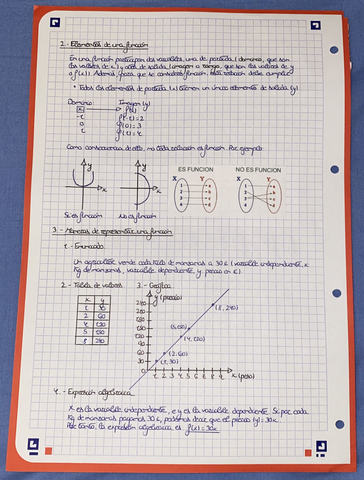 2.- Elementos de una función
En una función participan dos variables, una de partida (dominio, que son
los valores de x) y otra de salida (imagen o rango, que son los valores de y
o f(x)). Además, para que se considere función, esta relación debe cumplir:
• Todos los elementos de partida (x) tienen un único elemento de salida (y)
Dominio: Imagen (y)
x f(x)
-1 f(-1)=2
0 f(0)=3
1 f(1)=4
Como consecuencia de ello, no toda relación es función. Por ejemplo:
y x y x
ES FUNCION NO ES FUNCION
X Y X Y
1 2 3 4 a b c d
Si es función No es función
3.- Maneras de representar una función
1.- Enunciado
Un agricultor vende cada kilo de manzanas a 30€ (variable independiente, x
Kg de manzanas, variable dependiente, y precio en €).
2.- Tabla de valores 3.- Gráfica
x y
1 30
2 60
4 120
5 150
8 240
y (precio)
(8, 240)
(5, 150)
(4, 120)
(2, 60)
(1, 30)
0 1 2 3 4 5 6 7 8 9 x (peso)
4.- Expresión algebraica
X es la variable independiente, e y es la variable dependiente. Si por cada
Kg de manzanas pagamos 30€, podemos decir que el precio (y) = 30x
Por tanto, la expresión algebraica es f(x) = 30x